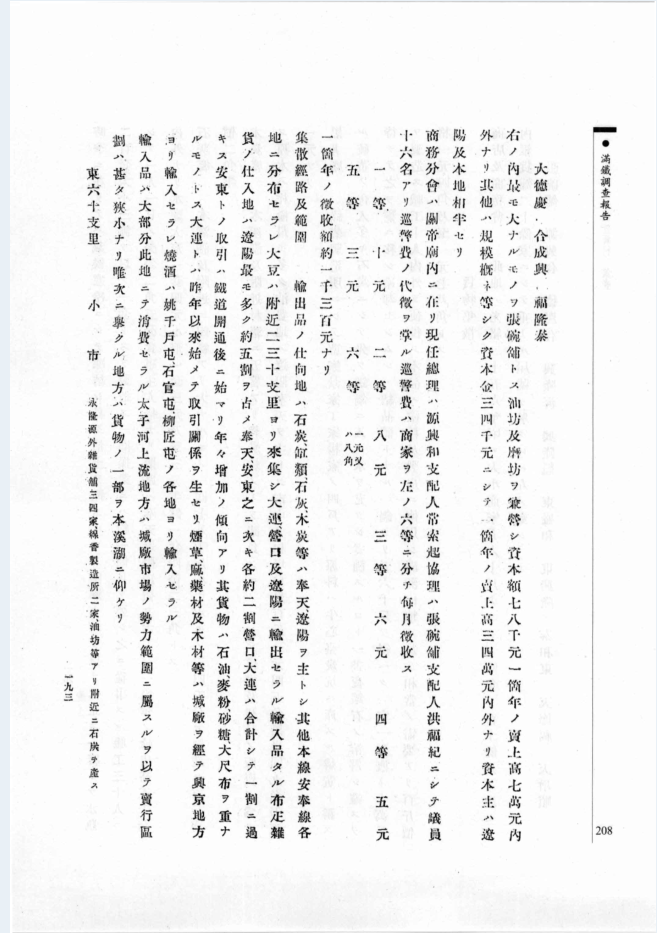 ● 滿鐵調查報告
208
大德慶、合成興、福隆泰
右ノ內最モ大ナルモノヲ張碗舖トス油坊及磨坊ヲ兼營シ資本額七八千元一箇年ノ賣上高七萬元內
外ナリ其他ハ規模槪ネ等シク資本金三四千元ニシテ一箇年ノ賣上高三四萬元內外ナリ資本主ハ遼
陽及本地相半セリ
商務分會ハ關帝廟內ニ在リ現任總理ハ源興和支配人常索起協理ハ張碗舖支配人洪福紀ニシテ議員
十六名アリ巡警費ノ代徵ヲ掌ル巡警費ハ商家ヲ左ノ六等ニ分チ每月徵收ス
一等 十元 二等 八元 三等 六元 四等 五元
五等 三元 六等 一元又ハ八角
一箇年ノ徵收額約一千三百元ナリ
集散經路及範圍 輸出品ノ仕向地ハ石炭、缸類、石灰、木炭等ハ奉天、遼陽ヲ主トシ其他本線安奉線各
地ニ分布セラレ大豆ハ附近二三十支里ヨリ來集シ大連、營口及遼陽ニ輸出セラル輸入品タル布疋雜
貨ノ仕入地ハ遼陽最モ多ク約五割ヲ占メ奉天安東之ニ次キ各約二割營口、大連ハ合計シテ一割ニ過
キス安東トノ取引ハ鐵道開通後ニ始マリ年々增加ノ傾向アリ其貨物ハ石油、麥粉、砂糖大尺布ヲ重ナ
ルモノトス大連トハ昨年以來始メテ取引關係ヲ生セリ煙草、麻、藥材及木材等ハ城廠ヲ經テ興京地方
ヨリ輸入セラレ燒酒ハ姚千戶屯、石官屯、柳匠屯ノ各地ヨリ輸入セラル
輸入品ハ大部分此地ニテ消費セラル太子河上流地方ハ城廠市場ノ勢力範圍ニ屬スルヲ以テ賣行區
劃ハ甚タ狹小ナリ唯次ニ擧クル地方ハ貨物ノ一部ヲ本溪湖ニ仰ケリ
東六十支里 小市 永隆源外雜貨舖三四家線香製造所二家油坊等アリ附近ニ石炭ヲ產ス
一九三